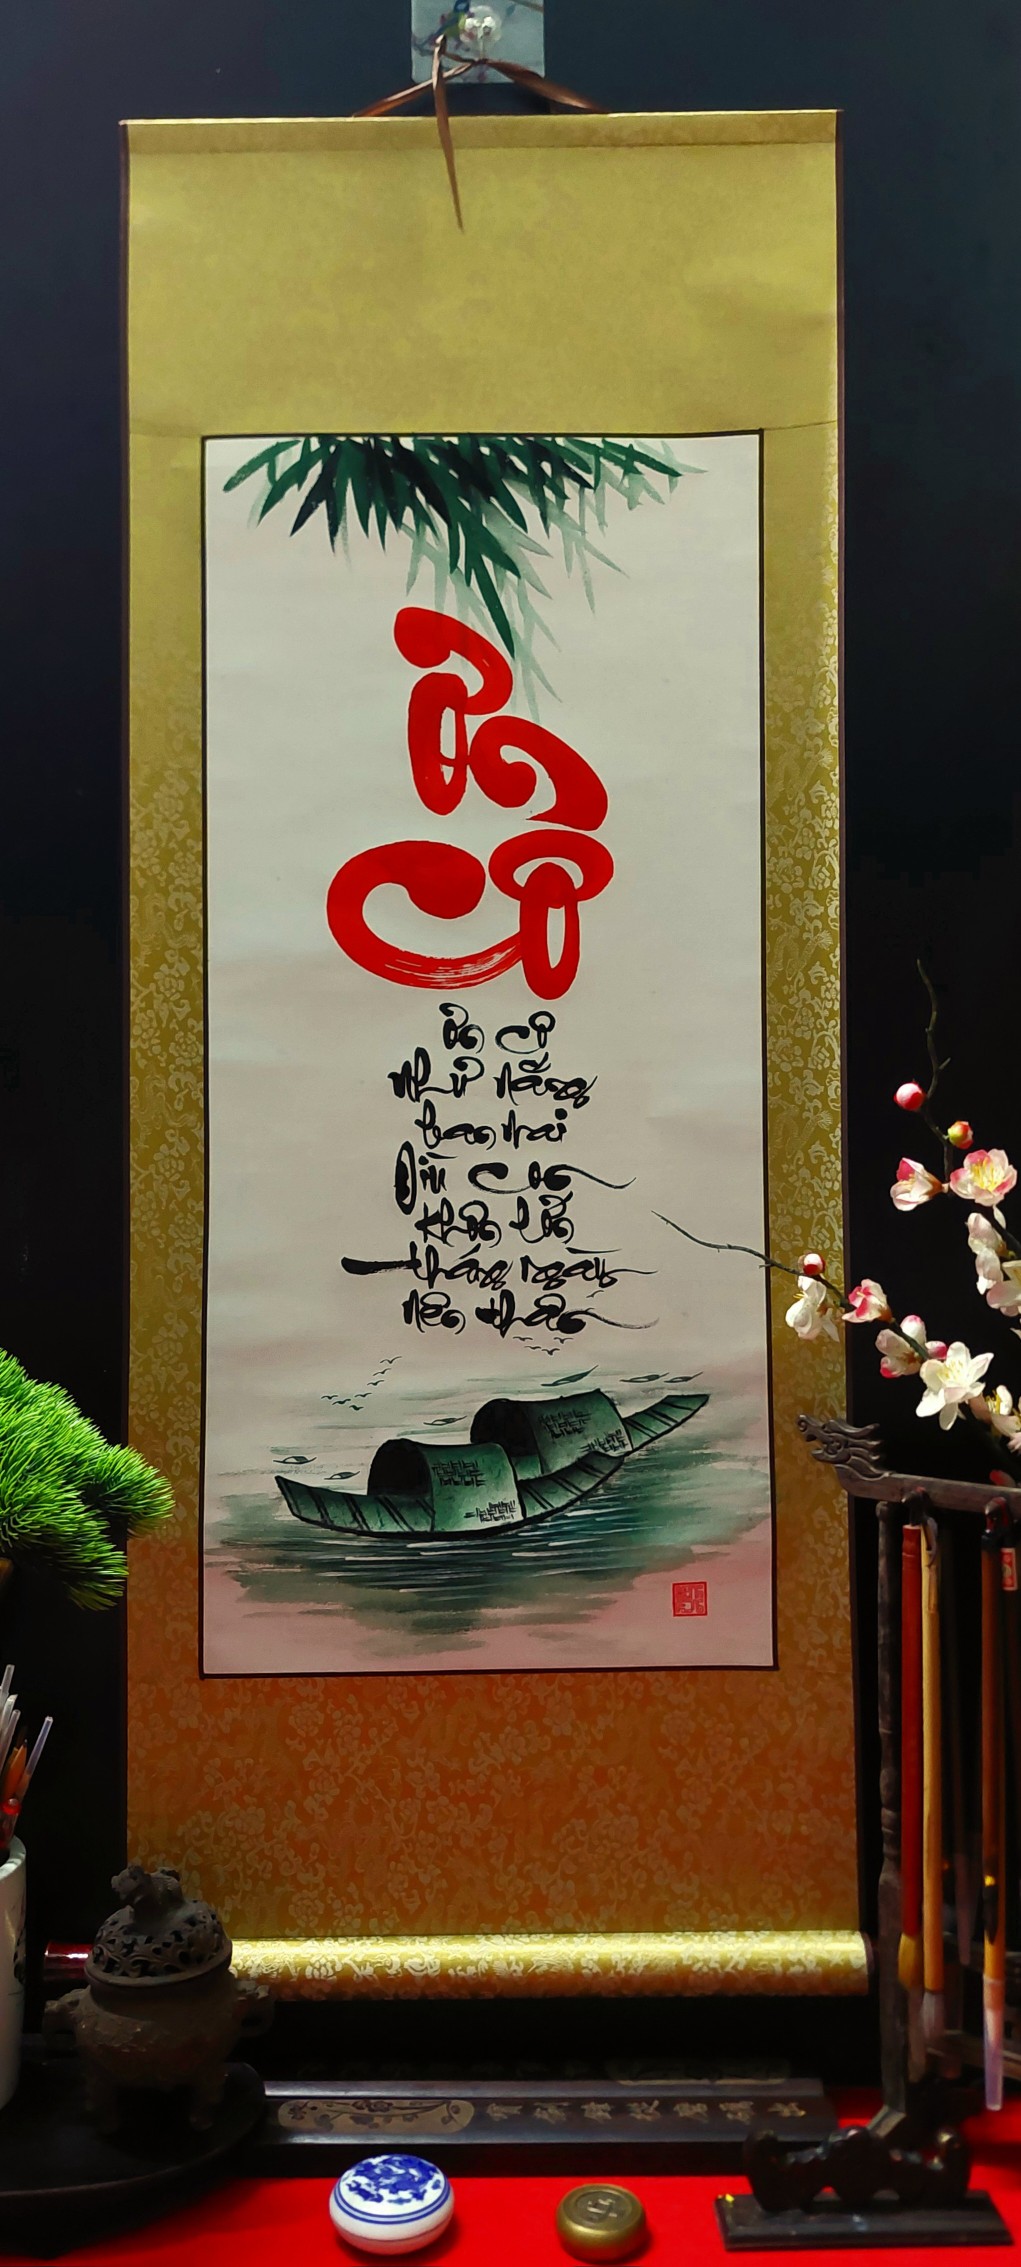 Ơn
Cô
Ơn cô
như nắng
ban mai
Dìu con
khôn lớn
tháng ngày
nên thân